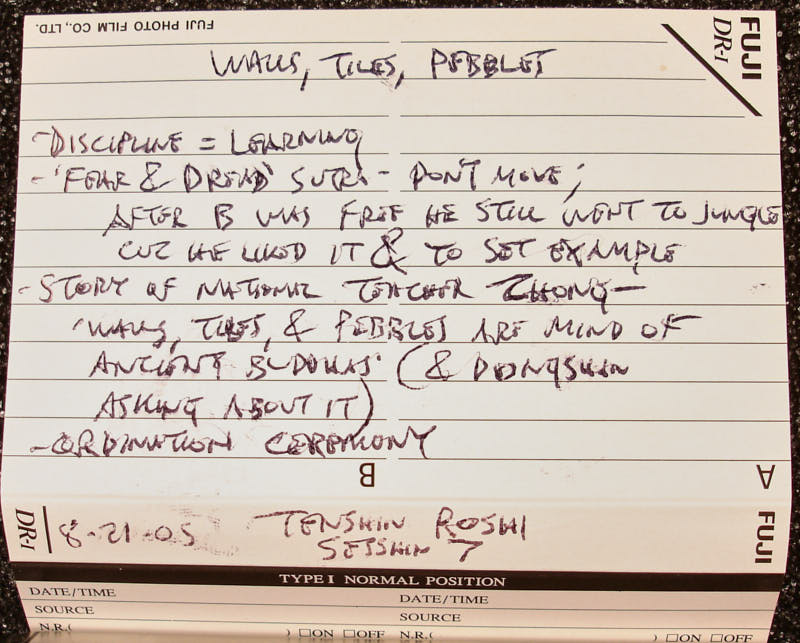 FUJI PHOTO FILM CO., LTD.
FUJI
DR-I
WALLS, TILES, PEBBLES
-DISCIPLINE = LEARNING
-'FEAR & DREAD' SUTRA - DON'T MOVE;
AFTER B WAS FREE HE STILL WENT TO JUNGLE
CUZ HE LIKED IT & TO SET EXAMPLE
-STORY OF NATIONAL TEACHER ZHONG-
'WALLS, TILES, & PEBBLES ARE MIND OF
ANCIENT BUDDHAS' (& DONGSHAN
ASKING ABOUT IT)
-ORDINATION CEREMONY
B
A
DR-I
8-21-05 TENSHIN ROSHI
SESSHIN 7
FUJI
TYPE I NORMAL POSITION
DATE/TIME DATE/TIME
SOURCE SOURCE
N.R.( ) □ON □OFF N.R.( ) □ON □OFF